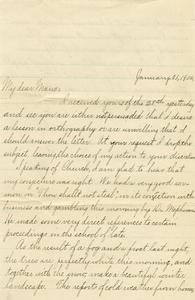 January 31, 1902.
My dear Mano:-
I received yours of the 28th yesterday
and see you are either not persuaded that I desire
a lesson in orthography or are unwilling that I
should answer the letter. At your request I drop the
subject, leaving the choice of my action to your discretion
Speaking of Church, I am glad to hear that
my conjecture was right. We had a very good ser-
mon on "Thou shalt not steal," in its connection with
business and gambling this morning by Dr.
He made some very direct references to certain
proceedings in the school of late.
As the result of a fog and a frost last night
the trees are perfectly white this morning, and
together with the snow make a beautiful winter
landscape. The reports of cold weather from home